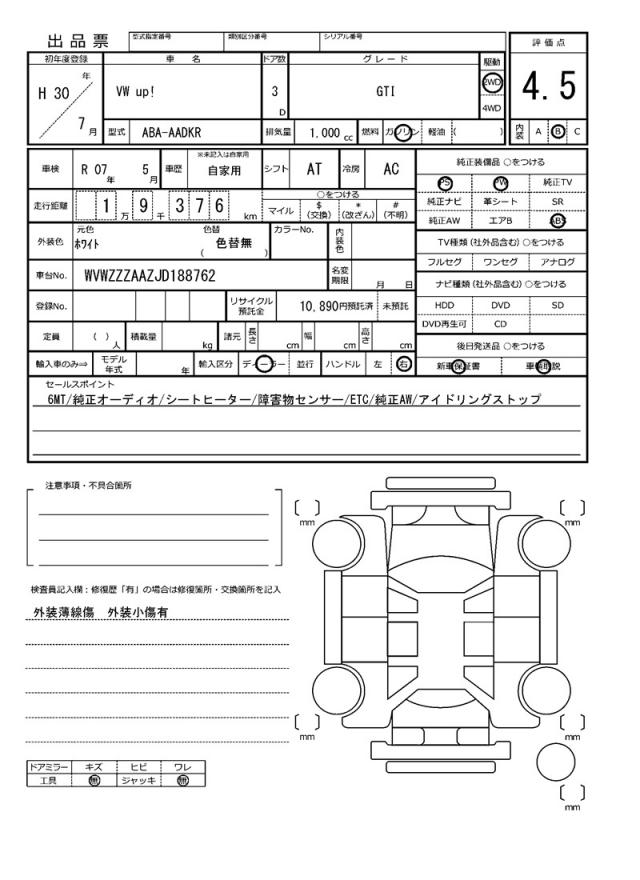 出品票
型式指定番号 類別区分番号 シリアル番号
初年度登録 車名 ドア数 グレード 駆動 評価点
H 30年 7月 VW up! 3D GTI 2WD 4WD 4.5
型式 ABA-AADKR 排気量 1,000cc 燃料 ガソリン 軽油 ( ) 内装 A B C
車検 R 07年 5月 車歴 ※未記入は自家用 自家用 シフト AT 冷房 AC
走行距離 1万9千376km
○をつける
マイル $(交換) *(改ざん) #(不明)
外装色 元色 ホワイト 色替 色替無 ( ) カラーNo. 内装色
車台No. WVWZZZAAZJD188762 名変期限 月 日
登録No. リサイクル預託金 10,890円預託済 未預託
定員 ( )人 積載量 kg 諸元 長さ cm 幅 cm 高さ cm
輸入車のみ⇒ モデル年式 年 輸入区分 ディーラー 並行 ハンドル 左 右
純正装備品 ○をつける
PS PW 純正TV
純正ナビ 革シート SR
純正AW エアB ABS
TV種類(社外品含む)○をつける
フルセグ ワンセグ アナログ
ナビ種類(社外品含む)○をつける
HDD DVD SD
DVD再生可 CD
後日発送品 ○をつける
新車保証書 車輌取説
セールスポイント
6MT/純正オーディオ/シートヒーター/障害物センサー/ETC/純正AW/アイドリングストップ
注意事項・不具合箇所
検査員記入欄：修復歴「有」の場合は修復箇所・交換箇所を記入
外装薄線傷 外装小傷有
ドアミラー キズ ヒビ ワレ
工具 無 ジャッキ 無
mm
mm
mm
mm
mm